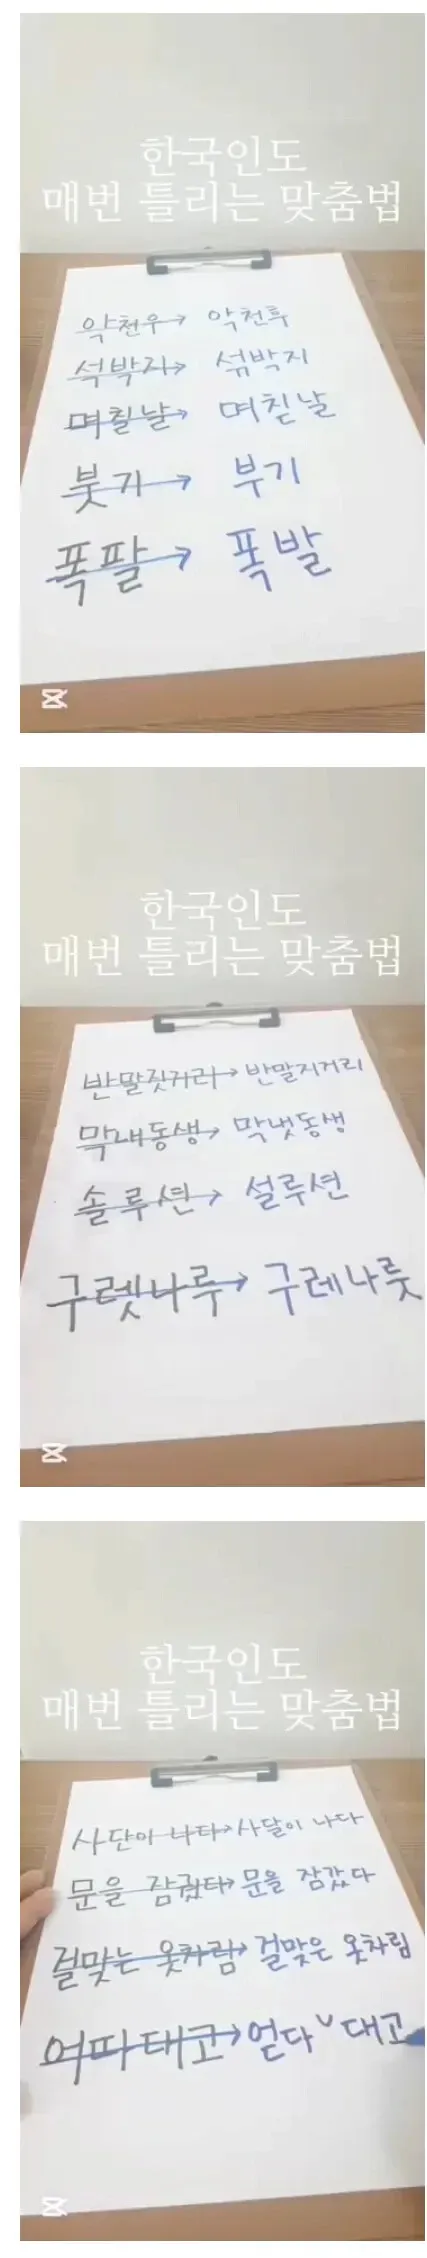 한국인도
매번 틀리는 맞춤법
악천우→ 악천후
석박지→ 섞박지
며칠날→ 며칟날
붓기→ 부기
폭팔→ 폭발
한국인도
매번 틀리는 맞춤법
반말짓거리→ 반말지거리
막내동생→ 막냇동생
솔루션→ 설루션
구렛나루→ 구레나룻
한국인도
매번 틀리는 맞춤법
사단이 나다→사달이 나다
문을 잠궜다→문을 잠갔다
걸맞는 옷차림→걸맞은 옷차림
어따 대고→얻다∨대고